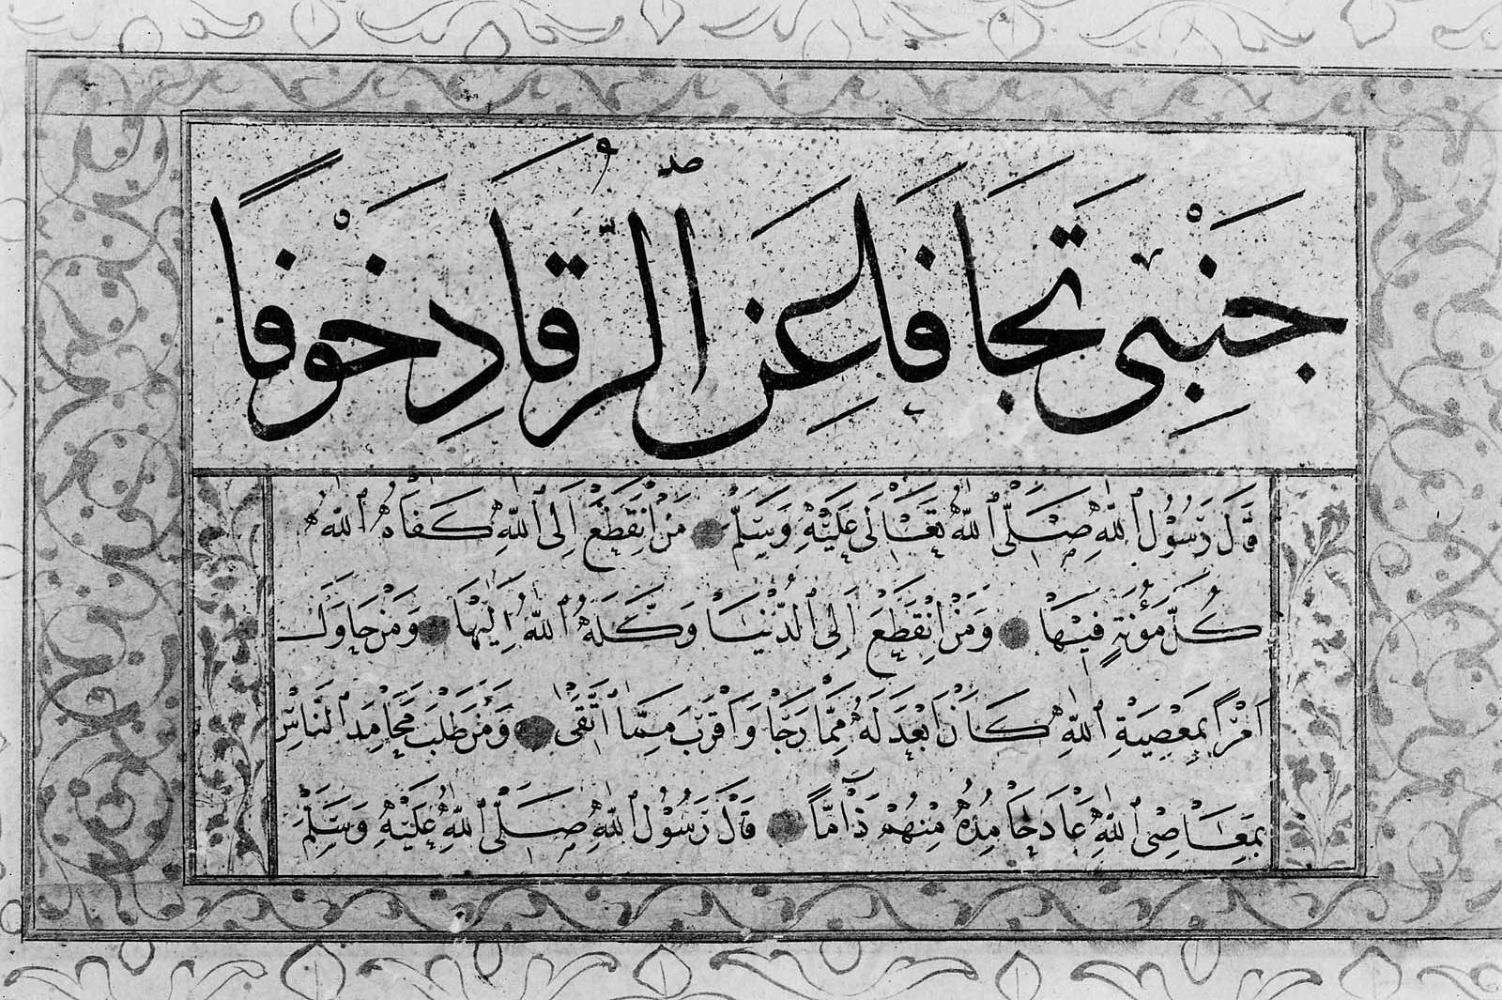 جَنْبِي تَجَافَا عَنِ الرُّقَادِ خَوْفًا
قَالَ رَسُوْلُ اللّٰهِ صَلَّى اللّٰهُ تَعَالَى عَلَيْهِ وَسَلَّمْ ● مَنْ اِنْقَطَعَ اِلَى اللّٰهِ كَفَاهُ اللّٰهُ
كُلَّ مَؤُنَةٍ فِيْهَا ● وَمَنْ اِنْقَطَعَ اِلَى الدُّنْيَا وَكَّلَهُ اللّٰهُ اِلَيْهَا ● وَمَنْ حَاوَلَ
اَمْرًا بِمَعْصِيَةِ اللّٰهِ كَانَ اَبْعَدَ لَهُ مِمَّا رَجَا وَاَقْرَبَ مِمَّا اتَّقَى ● وَمَنْ طَلَبَ مَحَامِدَ النَّاسِ
بِمَعَاصِى اللّٰهِ عَادَ حَامِدُهُ مِنْهُمْ ذَآمًّا ● قَالَ رَسُوْلُ اللّٰهِ صَلَّى اللّٰهُ عَلَيْهِ وَسَلَّمْ